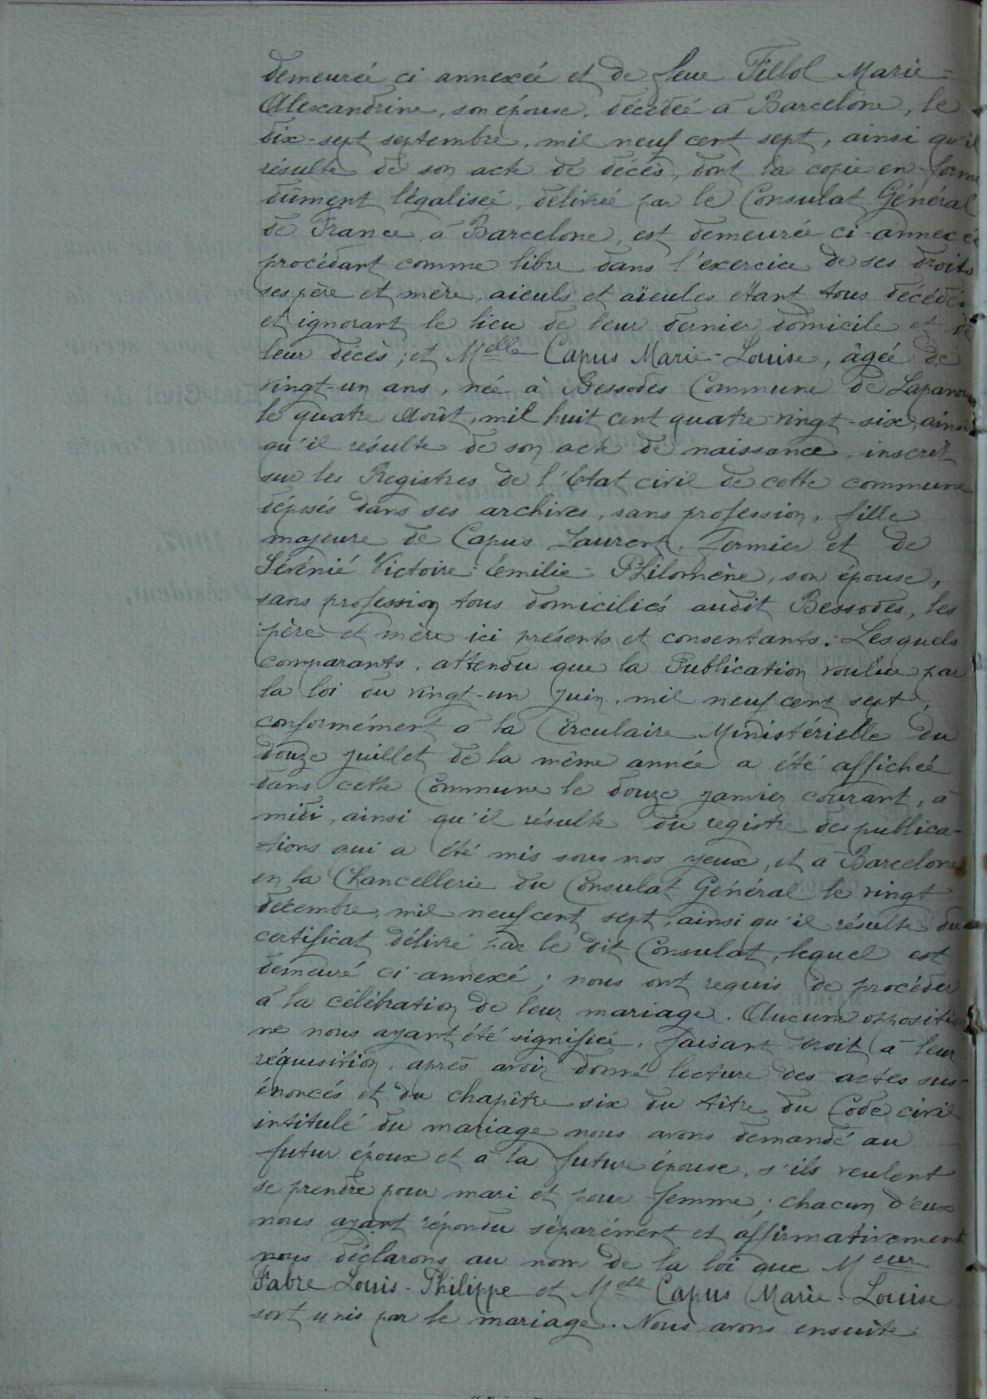 demeurée ci annexée et de feue Fillol Marie-
Alexandrine, son épouse, décédée à Barcelone, le
dix-sept septembre, mil neuf cent sept, ainsi qu'il
résulte de son acte de décès, dont la copie en forme
dûment légalisée, délivrée par le Consulat Général
de France, à Barcelone, est demeurée ci-annexée
procédant comme libre dans l'exercice de ses droits
ses père et mère, aieuls et aïeules étant tous décédés
et ignorant le lieu de leur dernier domicile et de
leur décès; et Melle Capus Marie-Louise, âgée de
vingt-un ans, née à Bessodes Commune de Lapanouse
le quatre Août, mil huit cent quatre vingt-six, ainsi
qu'il résulte de son acte de naissance, inscrit
sur les Registres de l'Etat civil de cette commune
déposés dans ses archives, sans profession, fille
majeure de Capus Laurent, fermier et de
Sévénié Victoire-Emilie-Philomène, son épouse,
sans profession tous domiciliés audit Bessodes, les
père et mère ici présents et consentants. Lesquels
comparants, attendu que la Publication voulue par
la loi du vingt-un Juin, mil neuf cent sept,
conformément à la Circulaire Ministérielle du
douze Juillet de la même année a été affichée
dans cette Commune le douze janvier courant, à
midi, ainsi qu'il résulte du registre des publica-
tions qui a été mis sous nos yeux, et à Barcelone
en la Chancellerie du Consulat Général le vingt
décembre, mil neuf cent sept, ainsi qu'il résulte du
certificat délivré par le dit Consulat, lequel est
demeuré ci-annexé; nous ont requis de procéder
à la célébration de leur mariage. Aucune opposition
ne nous ayant été signifiée, faisant droit à leur
réquisition, après avoir donné lecture des actes sus-
énoncés et du chapitre six du titre du Code civil
intitulé du mariage nous avons demandé au
futur époux et à la future épouse, s'ils veulent
se prendre pour mari et pour femme; chacun d'eux
nous ayant répondu séparément et affirmativement
nous déclarons au nom de la loi que Meur
Fabre Louis-Philippe et Melle Capus Marie-Louise
sont unis par le mariage. Nous avons ensuite